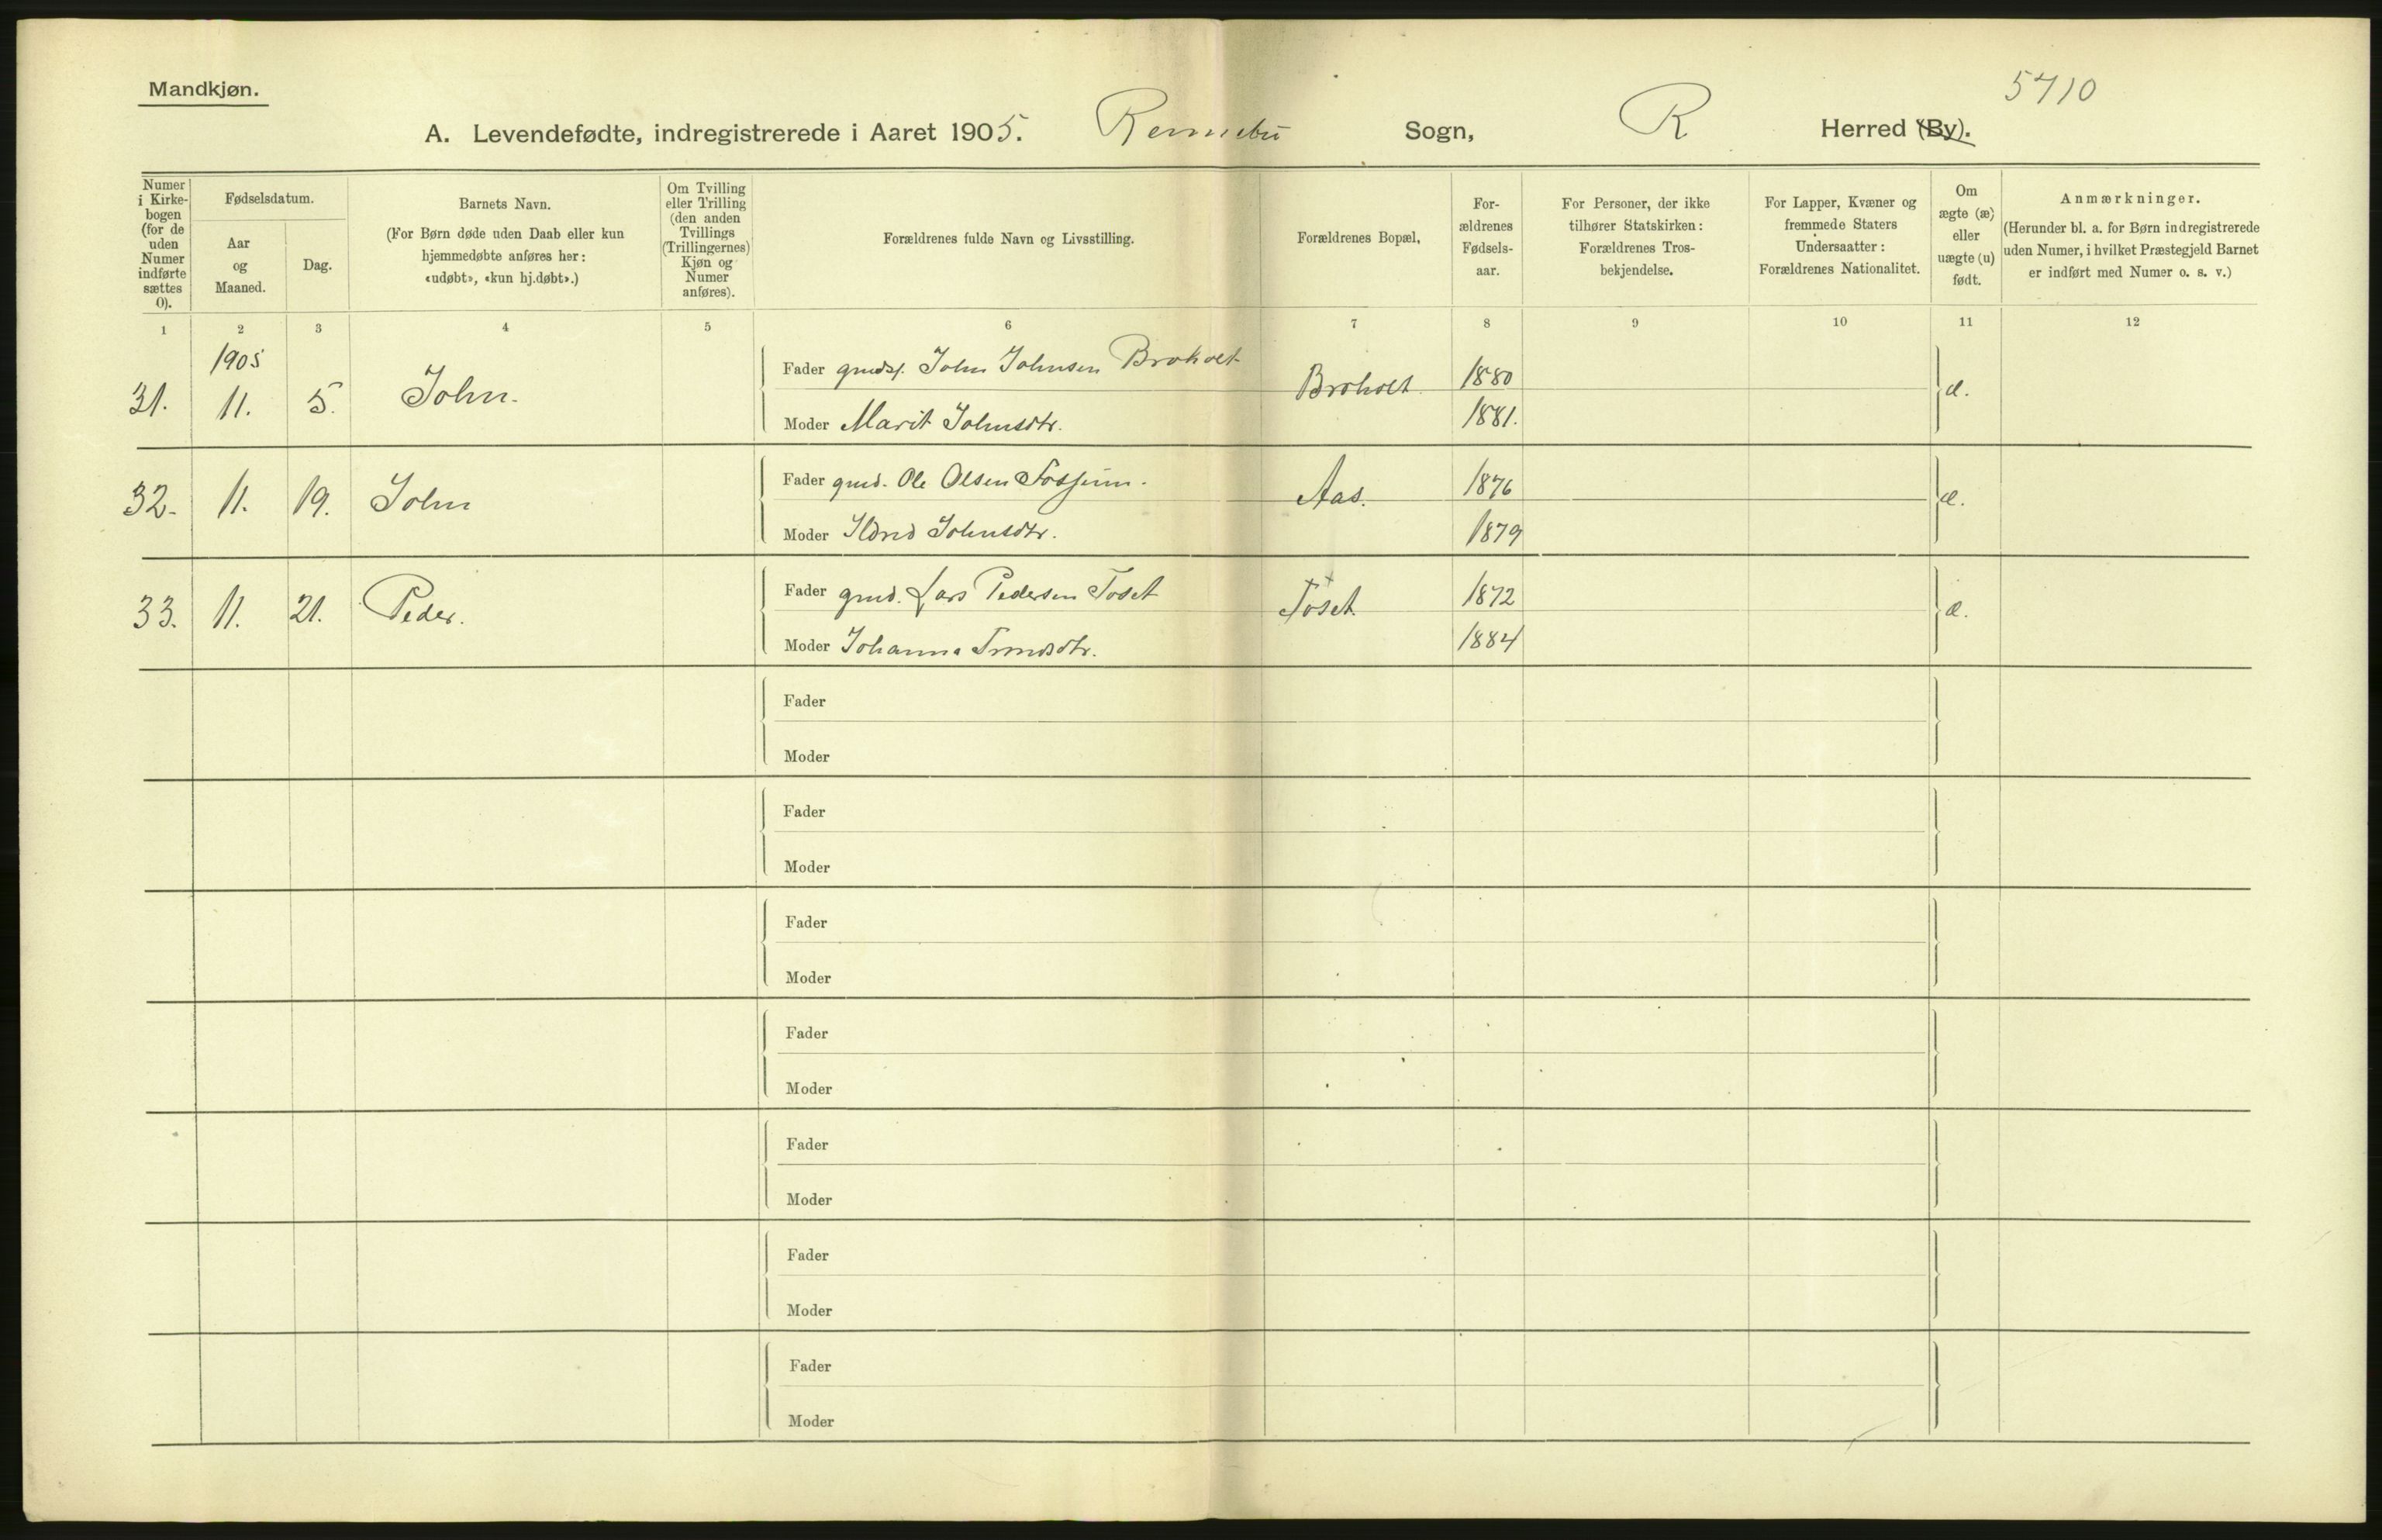 Mandkjøn.
5710
A. Levendefødte, indregistrerede i Aaret 1905. Rennebu Sogn, R Herred (By).
Numer i Kirke-bogen (for de uden Numer indførte sættes 0).
Fødselsdatum.
Aar og Maaned.
Dag.
Barnets Navn.
(For Børn døde uden Daab eller kun
hjemmedøbte anføres her:
«udøbt», «kun hj.døbt».)
Om Tvilling
eller Trilling
(den anden
Tvillings
(Trillingernes)
Kjøn og
Numer
anføres).
Forældrenes fulde Navn og Livsstilling.
Forældrenes Bopæl,
For-
ældrenes
Fødsels-
aar.
For Personer, der ikke
tilhører Statskirken:
Forældrenes Tros-
bekjendelse.
For Lapper, Kvæner og
fremmede Staters
Undersaatter:
Forældrenes Nationalitet.
Om
ægte (æ)
eller
uægte (u)
født.
Anmærkninger.
(Herunder bl. a. for Børn indregistrerede
uden Numer, i hvilket Præstegjeld Barnet
er indført med Numer o. s. v.)
1 2 3 4 5 6 7 8 9 10 11 12
1905
31. 11. 5. John. Fader John Johnsen Broholt Broholt. 1880 æ.
Moder Marit Johnsdtr. 1881.
32. 11. 19. John Fader gmd. Ole Olsen Fossum. Aas. 1876 æ.
Moder Ildrid Johnsdtr. 1879
33. 11. 21. Peder. Fader gmd. Lars Pedersen Toset Toset. 1872 æ.
Moder Johanna Trondsdtr. 1884
Fader
Moder
Fader
Moder
Fader
Moder
Fader
Moder
Fader
Moder
Fader
Moder
Fader
Moder